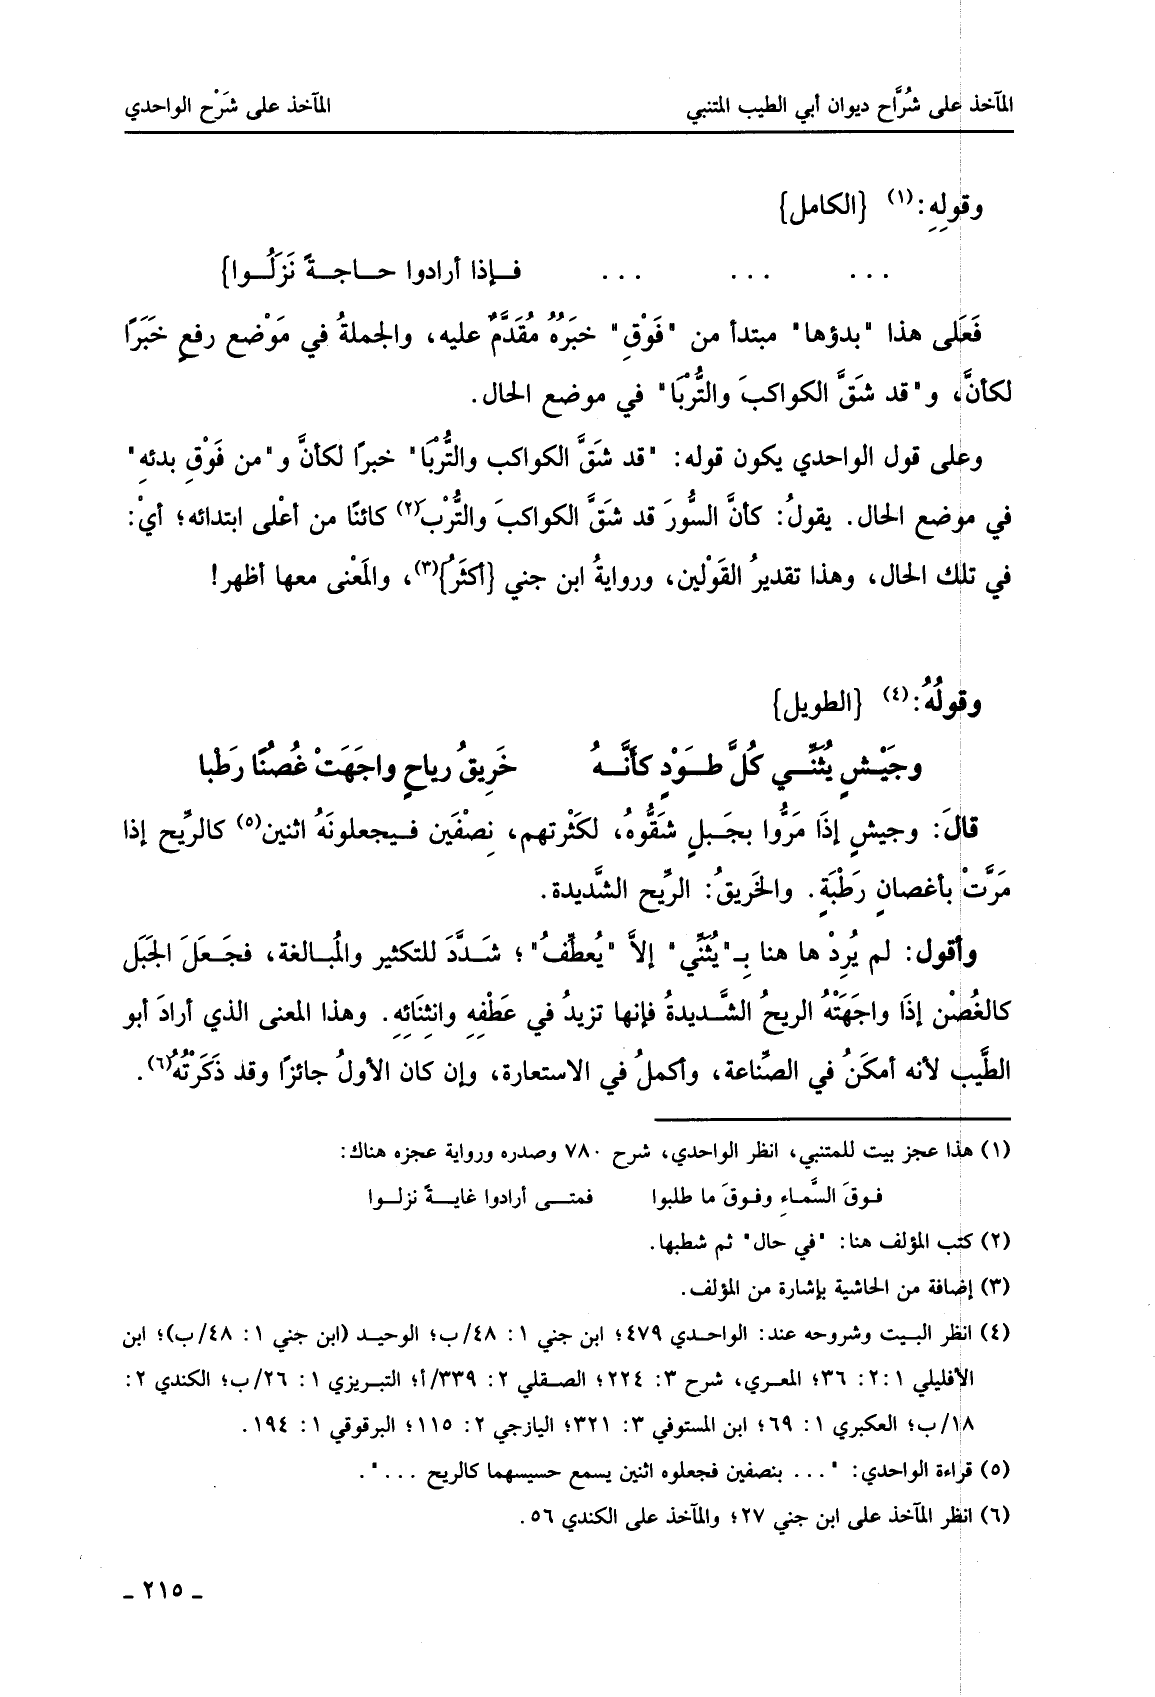 المآخذ على شُرَّاح ديوان أبي الطيب المتنبي المآخذ على شَرْح الواحدي
وقولِهِ:(١) {الكامل}
... ... ... فإذا أرادوا حاجةً نَزَلُوا}
فَعَلى هذا "بدؤها" مبتدأ من "فَوْقِ" خبَرُهُ مُقَدَّمٌ عليه، والجملةُ في مَوْضع رفعٍ خَبَرًا
لكأنَّ، و"قد شَقَّ الكواكبَ والتُّرْبَا" في موضع الحال.
وعلى قول الواحدي يكون قوله: "قد شَقَّ الكواكب والتُّرْبَا" خبرًا لكأنَّ و"من فَوْقِ بدئهِ"
في موضع الحال. يقولُ: كأنَّ السُّورَ قد شَقَّ الكواكبَ والتُّرْبَ(٢) كائنًا من أعْلى ابتدائه؛ أيْ:
في تلك الحال، وهذا تقديرُ القَوْلين، وروايةُ ابن جني {أكثَرُ}(٣)، والمَعْنى معها أظهر!
وقولُهُ:(٤) {الطويل}
وجَيْشٍ يُثَنِّي كُلَّ طَوْدٍ كأنَّهُ خَرِيقُ رياحٍ واجَهَتْ غُصُنًا رَطْبا
قالَ: وجيشٍ إذَا مَرُّوا بجَبلٍ شَقُّوهُ، لكَثْرتهم، نِصْفَين فيجعلونَهُ اثنين(٥) كالرِّيح إذا
مَرَّتْ بأغصانٍ رَطْبَةٍ. والخَريقُ: الرِّيح الشَّديدة.
وأقول: لم يُرِدْ ها هنا بِـ"يُثَنِّي" إلاَّ "يُعطِّفُ"؛ شَدَّدَ للتكثير والمُبالغة، فجَعَلَ الجَبَل
كالغُصْن إذَا واجَهَتْهُ الريحُ الشَّديدةُ فإنها تزيدُ في عَطْفِهِ وانثِنَائِهِ. وهذا المعنى الذي أرادَ أبو
الطَّيب لأنه أمكَنُ في الصِّناعة، وأكملُ في الاستعارة، وإن كان الأولُ جائزًا وقد ذَكَرْتُهُ(٦).
(١) هذا عجز بيت للمتنبي، انظر الواحدي، شرح ٧٨٠ وصدره ورواية عجزه هناك:
فوقَ السَّماءِ وفوقَ ما طلبوا فمتى أرادوا غايةً نزلوا
(٢) كتب المؤلف هنا: "في حال" ثم شطبها.
(٣) إضافة من الحاشية بإشارة من المؤلف.
(٤) انظر البيت وشروحه عند: الواحدي ٤٧٩؛ ابن جني ١: ٤٨/ب؛ الوحيد (ابن جني ١: ٤٨/ب)؛ ابن
الأفليلي ٢:١: ٣٦؛ المعري، شرح ٣: ٢٢٤؛ الصقلي ٢: ٣٣٩/أ؛ التبريزي ١: ٢٦/ب؛ الكندي ٢:
١٨/ب؛ العكبري ١: ٦٩؛ ابن المستوفي ٣: ٣٢١؛ اليازجي ٢: ١١٥؛ البرقوقي ١: ١٩٤.
(٥) قراءة الواحدي: "... بنصفين فجعلوه اثنين يسمع حسيسهما كالريح ...".
(٦) انظر المآخذ على ابن جني ٢٧؛ والمآخذ على الكندي ٥٦.
ـ ٢١٥ ـ